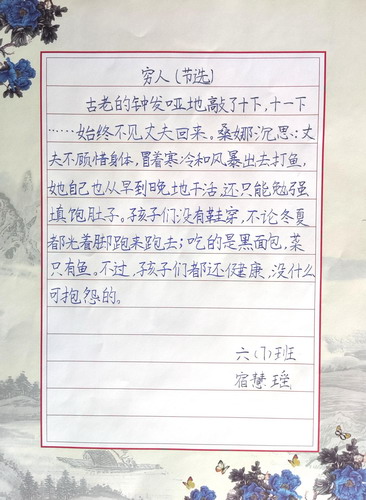 穷人(节选)
古老的钟发哑地敲了十下,十一下
……始终不见丈夫回来。桑娜沉思:丈
夫不顾惜身体,冒着寒冷和风暴出去打鱼,
她自己也从早到晚地干活,还只能勉强
填饱肚子。孩子们没有鞋穿,不论冬夏
都光着脚跑来跑去;吃的是黑面包,菜
只有鱼。不过,孩子们都还健康,没什么
可抱怨的。
六(7)班
宿慧瑶